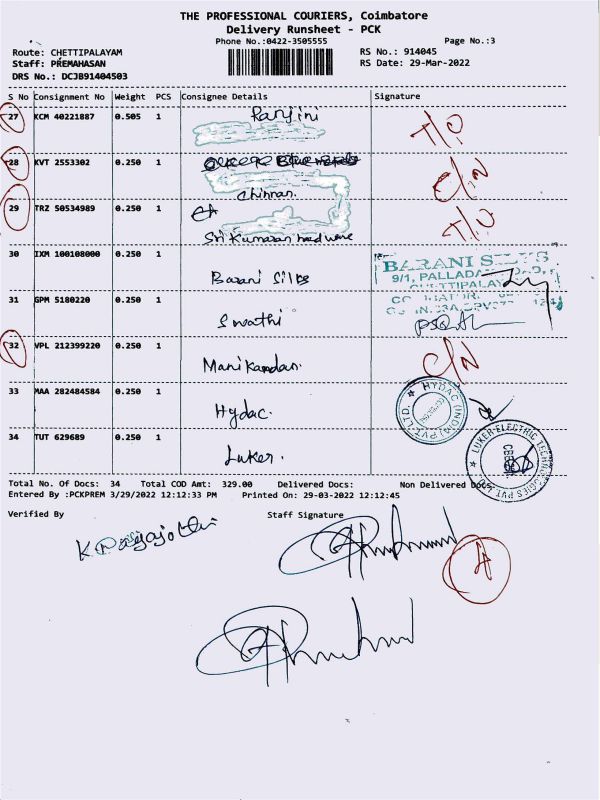 THE PROFESSIONAL COURIERS, Coimbatore
Delivery Runsheet - PCK
Phone No.:0422-3505555
Page No.:3
Route: CHETTIPALAYAM
RS No.: 914045
Staff: PREMAHASAN
RS Date: 29-Mar-2022
DRS No.: DCJB91404503
S No Consignment No Weight PCS Consignee Details Signature
27 KCM 40221887 0.505 1 Ranjini T/O
28 KVT 2553302 0.250 1 C/N
Chinran
29 TRZ 50534989 0.250 1 T/O
Sri Kumaran hardware
30 IXM 100108000 0.250 1 Barani Silks
BARANI SILKS
9/1, PALLADA
CHETTIPALAY
31 GPM 5180220 0.250 1 Swathi
32 VPL 212399220 0.250 1 Manikandan C/N
33 MAA 282484584 0.250 1 Hydac
HYDAC (INDIA) PVT LTD.
34 TUT 629689 0.250 1 Luker
LUKER ELECTRIC TECHNOLOGIES PVT. LTD
Total No. Of Docs: 34 Total COD Amt: 329.00 Delivered Docs: Non Delivered Docs:
Entered By :PCKPREM 3/29/2022 12:12:33 PM Printed On: 29-03-2022 12:12:45
Verified By Staff Signature
A